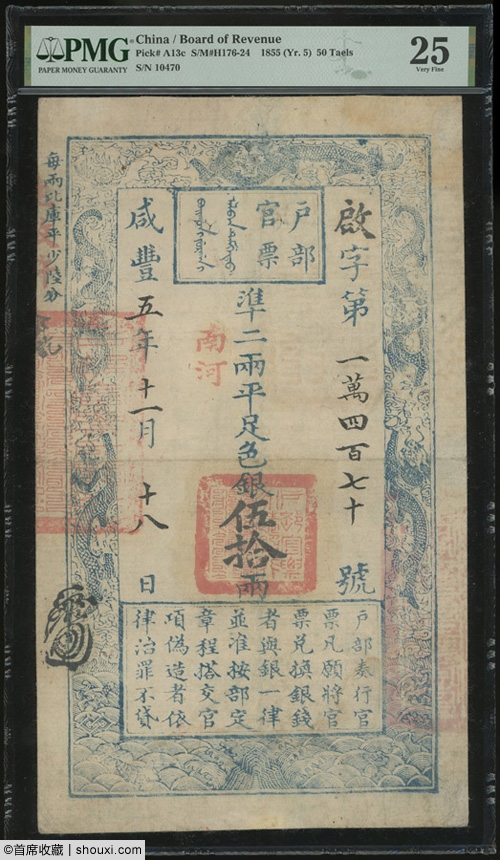 PMG
PAPER MONEY GUARANTY
China / Board of Revenue
Pick# A13c S/M#H176-24 1855 (Yr. 5) 50 Taels
S/N 10470
25
Very Fine
每兩比庫平少陸分
戶部
官票
啟字第一萬四百七十號
準二兩平足色銀伍拾兩
南河
咸豐五年十一月十八日
戶部奏行官
票凡願將官
票兌換銀錢
者與銀一律
並准按部定
章程搭交官
項偽造者依
律治罪不貸
@首席收藏 | shouxi.com